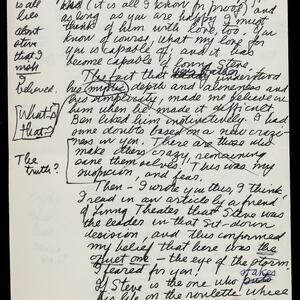 is all
lies
about
steve
that I
wish
I
believed.
[What is
that?]
The
truth?
bad (it is all I know for proof) and
as long as you are happy I must
think of him with love, too. You
know of course, what my love for
you is capable of, and it has
become capable of loving Steve.
The fact that understood
his depth and aloneness and
his simplicity, made me believe in
him when he made it difficult.
Ben liked him instinctively. I had
some doubts based on a new crazi-
ness in you. There are those who
make others crazy, remaining
sane themselves. This was my
suspicion, and fear.
Then - I wrote you this, I think
I read in an article by a friend
of Living Theatre that Steve was
the leader in that sit-down
decision, and this confirmed
my belief that here was the
quiet one - the eye of the storm.
I feared for you!
If Steve is the one who stakes
his life on the roulette wheel